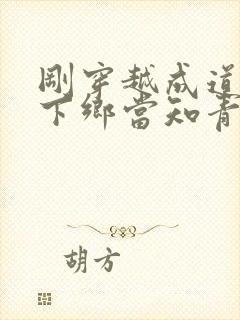 剛穿越成道
下鄉當知青
胡方